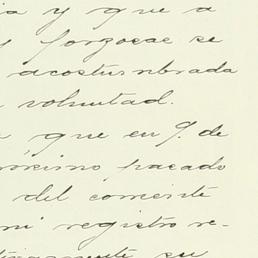 y que a
forzosas se
acostumbrada
voluntad.
que en 9. de
pasado
del corriente
mi registro re-
su